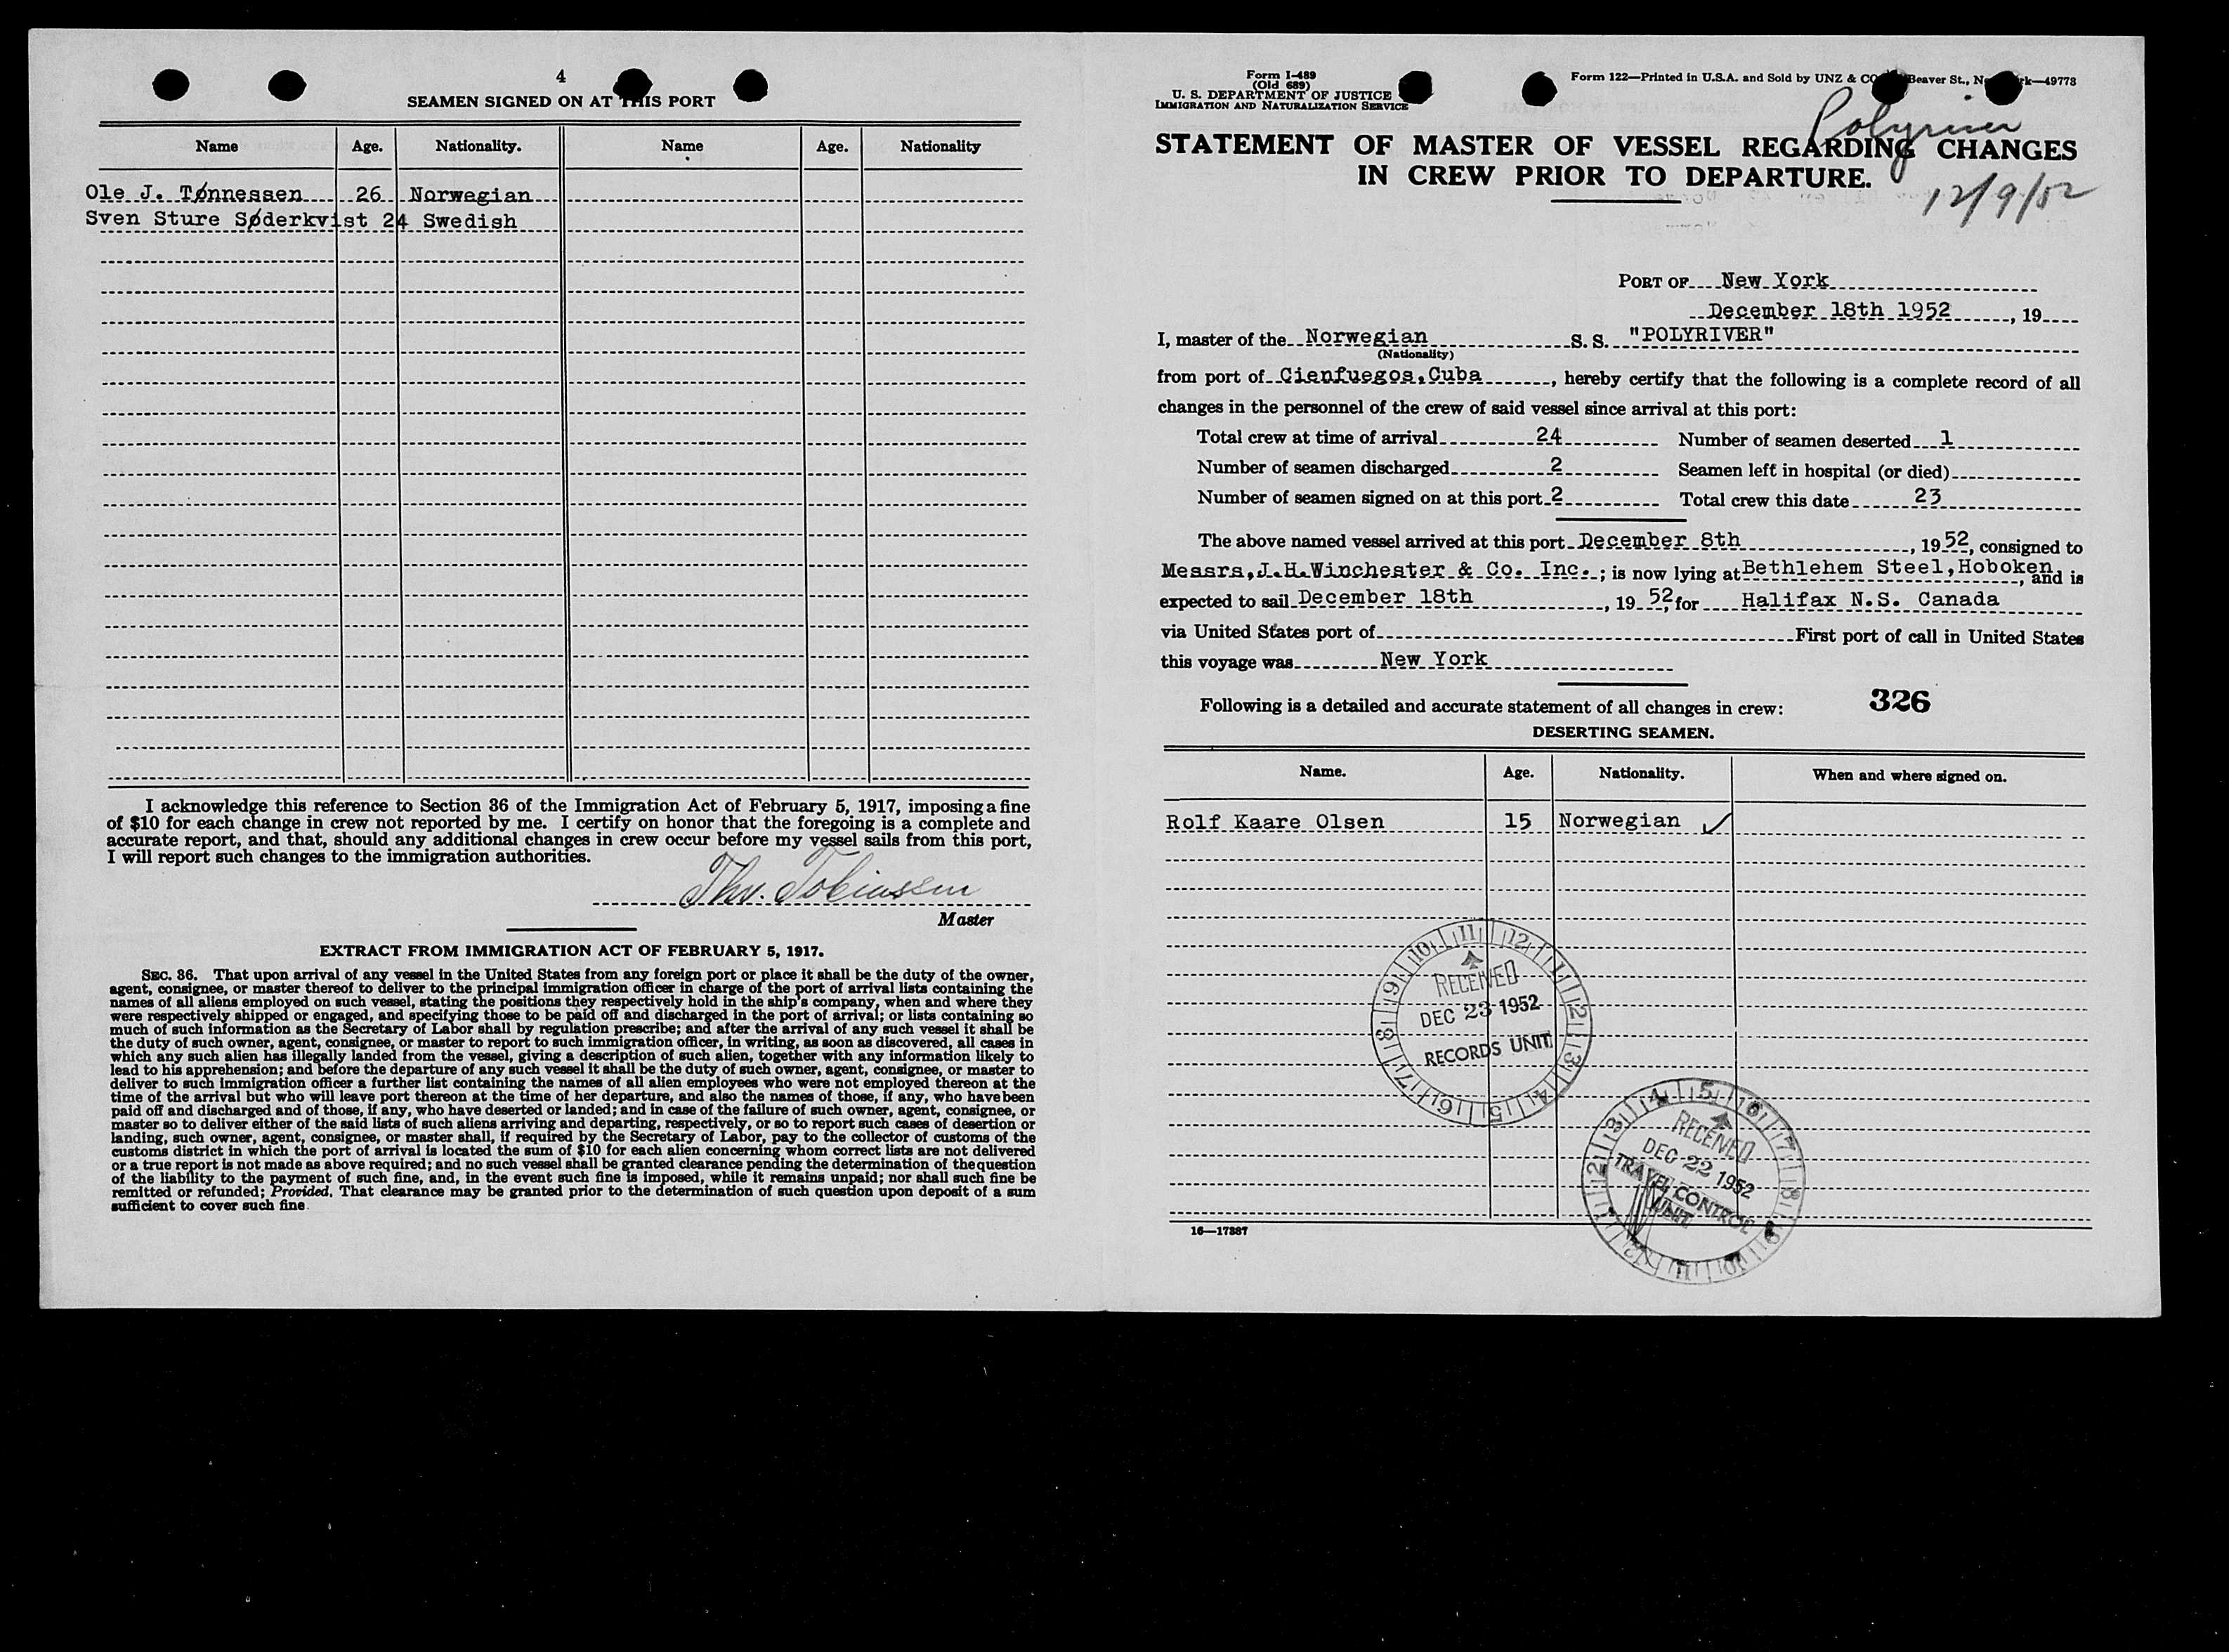 4
SEAMEN SIGNED ON AT THIS PORT
Name Age. Nationality. Name Age. Nationality
Ole J. Tønnessen 26 Norwegian
Sven Sture Søderkvist 24 Swedish
I acknowledge this reference to Section 36 of the Immigration Act of February 5, 1917, imposing a fine
of $10 for each change in crew not reported by me. I certify on honor that the foregoing is a complete and
accurate report, and that, should any additional changes in crew occur before my vessel sails from this port,
I will report such changes to the immigration authorities.
Thv. Tobiassen
Master
EXTRACT FROM IMMIGRATION ACT OF FEBRUARY 5, 1917.
SEC. 36. That upon arrival of any vessel in the United States from any foreign port or place it shall be the duty of the owner,
agent, consignee, or master thereof to deliver to the principal immigration officer in charge of the port of arrival lists containing the
names of all aliens employed on such vessel, stating the positions they respectively hold in the ship's company, when and where they
were respectively shipped or engaged, and specifying those to be paid off and discharged in the port of arrival; or lists containing so
much of such information as the Secretary of Labor shall by regulation prescribe; and after the arrival of any such vessel it shall be
the duty of such owner, agent, consignee, or master to report to such immigration officer, in writing, as soon as discovered, all cases in
which any such alien has illegally landed from the vessel, giving a description of such alien, together with any information likely to
lead to his apprehension; and before the departure of any such vessel it shall be the duty of such owner, agent, consignee, or master to
deliver to such immigration officer a further list containing the names of all alien employees who were not employed thereon at the
time of the arrival but who will leave port thereon at the time of her departure, and also the names of those, if any, who have been
paid off and discharged and of those, if any, who have deserted or landed; and in case of the failure of such owner, agent, consignee, or
master so to deliver either of the said lists of such aliens arriving and departing, respectively, or so to report such cases of desertion or
landing, such owner, agent, consignee, or master shall, if required by the Secretary of Labor, pay to the collector of customs of the
customs district in which the port of arrival is located the sum of $10 for each alien concerning whom correct lists are not delivered
or a true report is not made as above required; and no such vessel shall be granted clearance pending the determination of the question
of the liability to the payment of such fine, and, in the event such fine is imposed, while it remains unpaid; nor shall such fine be
remitted or refunded; Provided, That clearance may be granted prior to the determination of such question upon deposit of a sum
sufficient to cover such fine.
Form I-489
(Old 689)
U. S. DEPARTMENT OF JUSTICE
IMMIGRATION AND NATURALIZATION SERVICE
Form 122—Printed in U.S.A. and Sold by UNZ & CO Beaver St., —49778
Polyriver
STATEMENT OF MASTER OF VESSEL REGARDING CHANGES
IN CREW PRIOR TO DEPARTURE.
12/9/52
PORT OF New York
December 18th 1952, 19
I, master of the Norwegian S. S. "POLYRIVER"
(Nationality)
from port of Cienfuegos,Cuba, hereby certify that the following is a complete record of all
changes in the personnel of the crew of said vessel since arrival at this port:
Total crew at time of arrival 24 Number of seamen deserted 1
Number of seamen discharged 2 Seamen left in hospital (or died)
Number of seamen signed on at this port 2 Total crew this date 23
The above named vessel arrived at this port December 8th, 1952, consigned to
Messrs,J.H.Winchester & Co. Inc.; is now lying at Bethlehem Steel,Hoboken, and is
expected to sail December 18th, 19 52, for Halifax N.S. Canada
via United States port of First port of call in United States
this voyage was New York
Following is a detailed and accurate statement of all changes in crew: 326
DESERTING SEAMEN.
Name. Age. Nationality. When and where signed on.
Rolf Kaare Olsen 15 Norwegian ✓
RECEIVED
DEC 23 1952
RECORDS UNIT
11 12 1 2 3 4 5 6 7 8 9 10
RECEIVED
DEC 22 1952
TRAVEL CONTROL
UNIT
4 5 6 7 8 9 10 11 12 1 2 3
16—17387